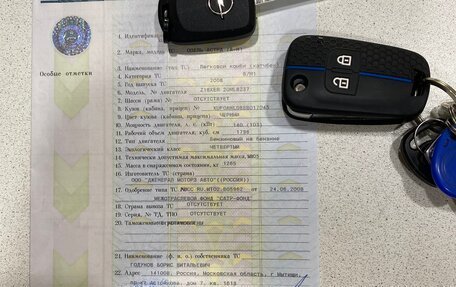 1. Идентификац
2. Марка, модель ТС ОПЕЛЬ-АСТРА (А-Н)
3. Наименование (тип ТС) Легковой комби (хэтчбек)
Особые отметки
4. Категория ТС В/М1
5. Год выпуска ТС 2008
6. Модель, № двигателя
7. Шасси (рама) № ОТСУТСТВУЕТ
8. Кузов (кабина, прицеп) №
9. Цвет кузова (кабины, прицепа) ЧЕРНЫЙ
10. Мощность двигателя, л. с. (кВт) 140 (103)
11. Рабочий объем двигателя, куб. см 1796
12. Тип двигателя Бензиновый на бензине
13. Экологический класс ЧЕТВЕРТЫЙ
14. Технически допустимая максимальная масса, кг
15. Масса в снаряженном состоянии, кг 1265
16. Изготовитель ТС (страна)
ООО "ДЖЕНЕРАЛ МОТОРЗ АВТО"((РОССИЯ))
17. Одобрение типа ТС № от 24.06.2008
МЕЖОТРАСЛЕВОЙ ФОНД "САТР-ФОНД"
18. Страна вывоза ТС ОТСУТСТВУЕТ
19. Серия, № ТД, ТПО ОТСУТСТВУЕТ
20. Таможенные ограничения
21. Наименование (ф. и. о.) собственника ТС
ГОДУНОВ БОРИС ВИТАЛЬЕВИЧ
22. Адрес 141008, Россия, Московская область, г Мытищи,
дом 7, кв.